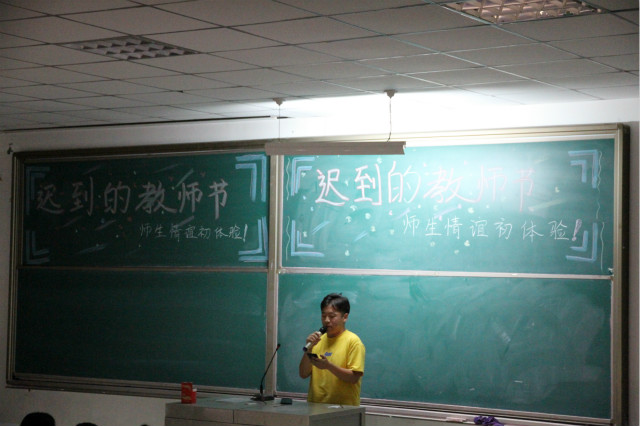 迟到的教师节
师生情谊初体验!
迟到的教师节
师生情谊初体验!